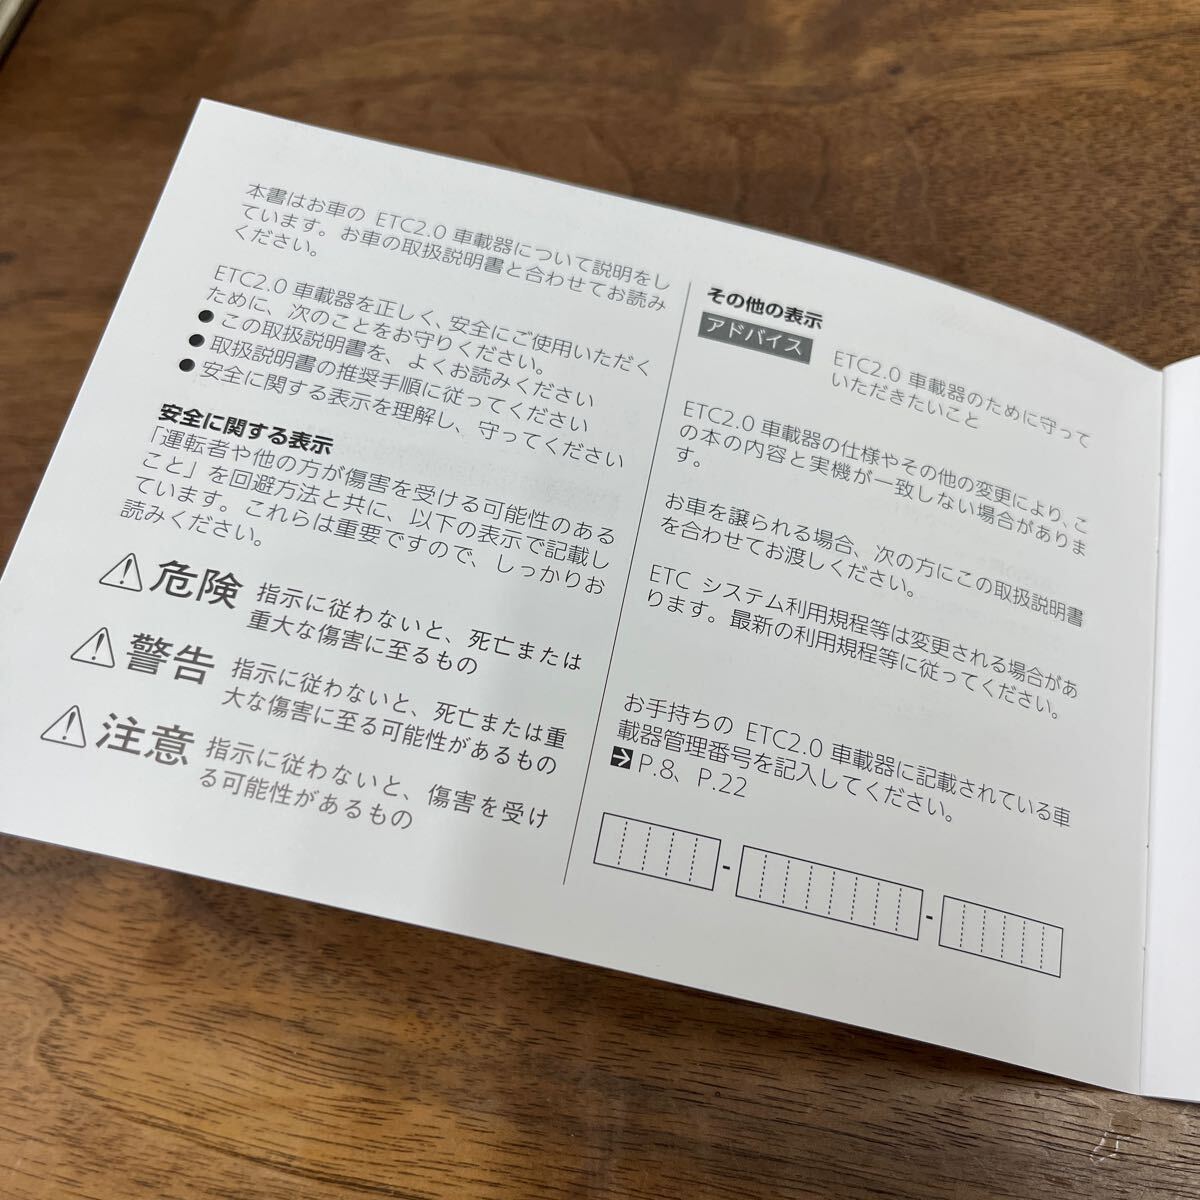 本書はお車の ETC2.0 車載器について説明をし
ています。お車の取扱説明書と合わせてお読み
ください。
ETC2.0 車載器を正しく、安全にご使用いただく
ために、次のことをお守りください。
● この取扱説明書を、よくお読みください
● 取扱説明書の推奨手順に従ってください
● 安全に関する表示を理解し、守ってください
安全に関する表示
「運転者や他の方が傷害を受ける可能性のある
こと」を回避方法と共に、以下の表示で記載し
ています。これらは重要ですので、しっかりお
読みください。
危険 指示に従わないと、死亡または
重大な傷害に至るもの
警告 指示に従わないと、死亡または重
大な傷害に至る可能性があるもの
注意 指示に従わないと、傷害を受け
る可能性があるもの
その他の表示
アドバイス ETC2.0 車載器のために守って
いただきたいこと
ETC2.0 車載器の仕様やその他の変更により、こ
の本の内容と実機が一致しない場合がありま
す。
お車を譲られる場合、次の方にこの取扱説明書
を合わせてお渡しください。
ETC システム利用規程等は変更される場合があ
ります。最新の利用規程等に従ってください。
お手持ちの ETC2.0 車載器に記載されている車
載器管理番号を記入してください。
P.8、P.22
- -